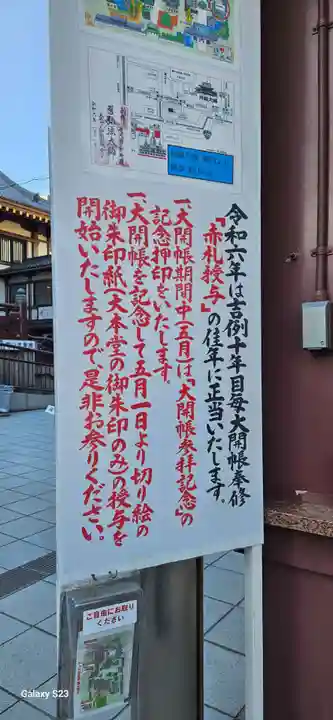 令和六年は吉例十年目毎大開帳奉修
「赤札授与」の佳年に正当いたします。
一、大開帳期間中(五月)は「大開帳参拝記念」の
記念押印をいたします。
一、大開帳を記念して五月一日より切り絵の
御朱印紙(大本堂の御朱印のみ)の授与を
開始いたしますので、是非お参りください。
ご自由にお取り
ください
Galaxy S23